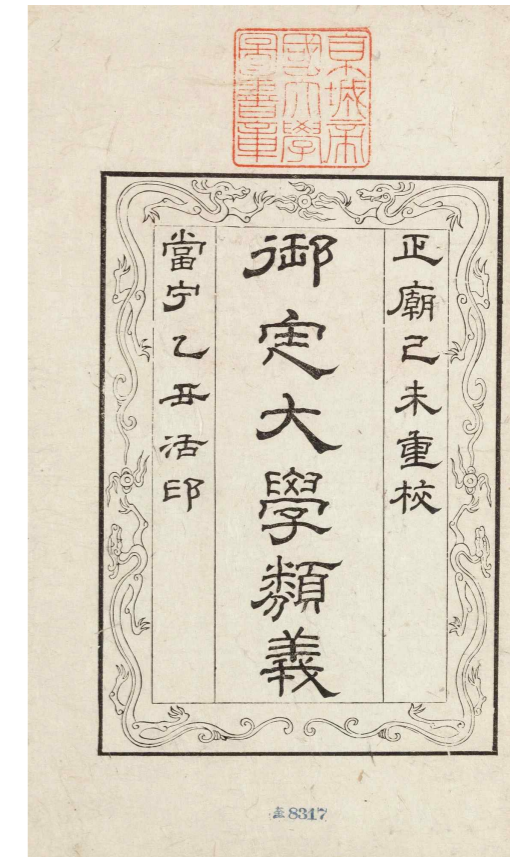 京城帝
國大學
圖書章
正廟己未重校
御定大學類義
當宁乙丑活印
奎8317